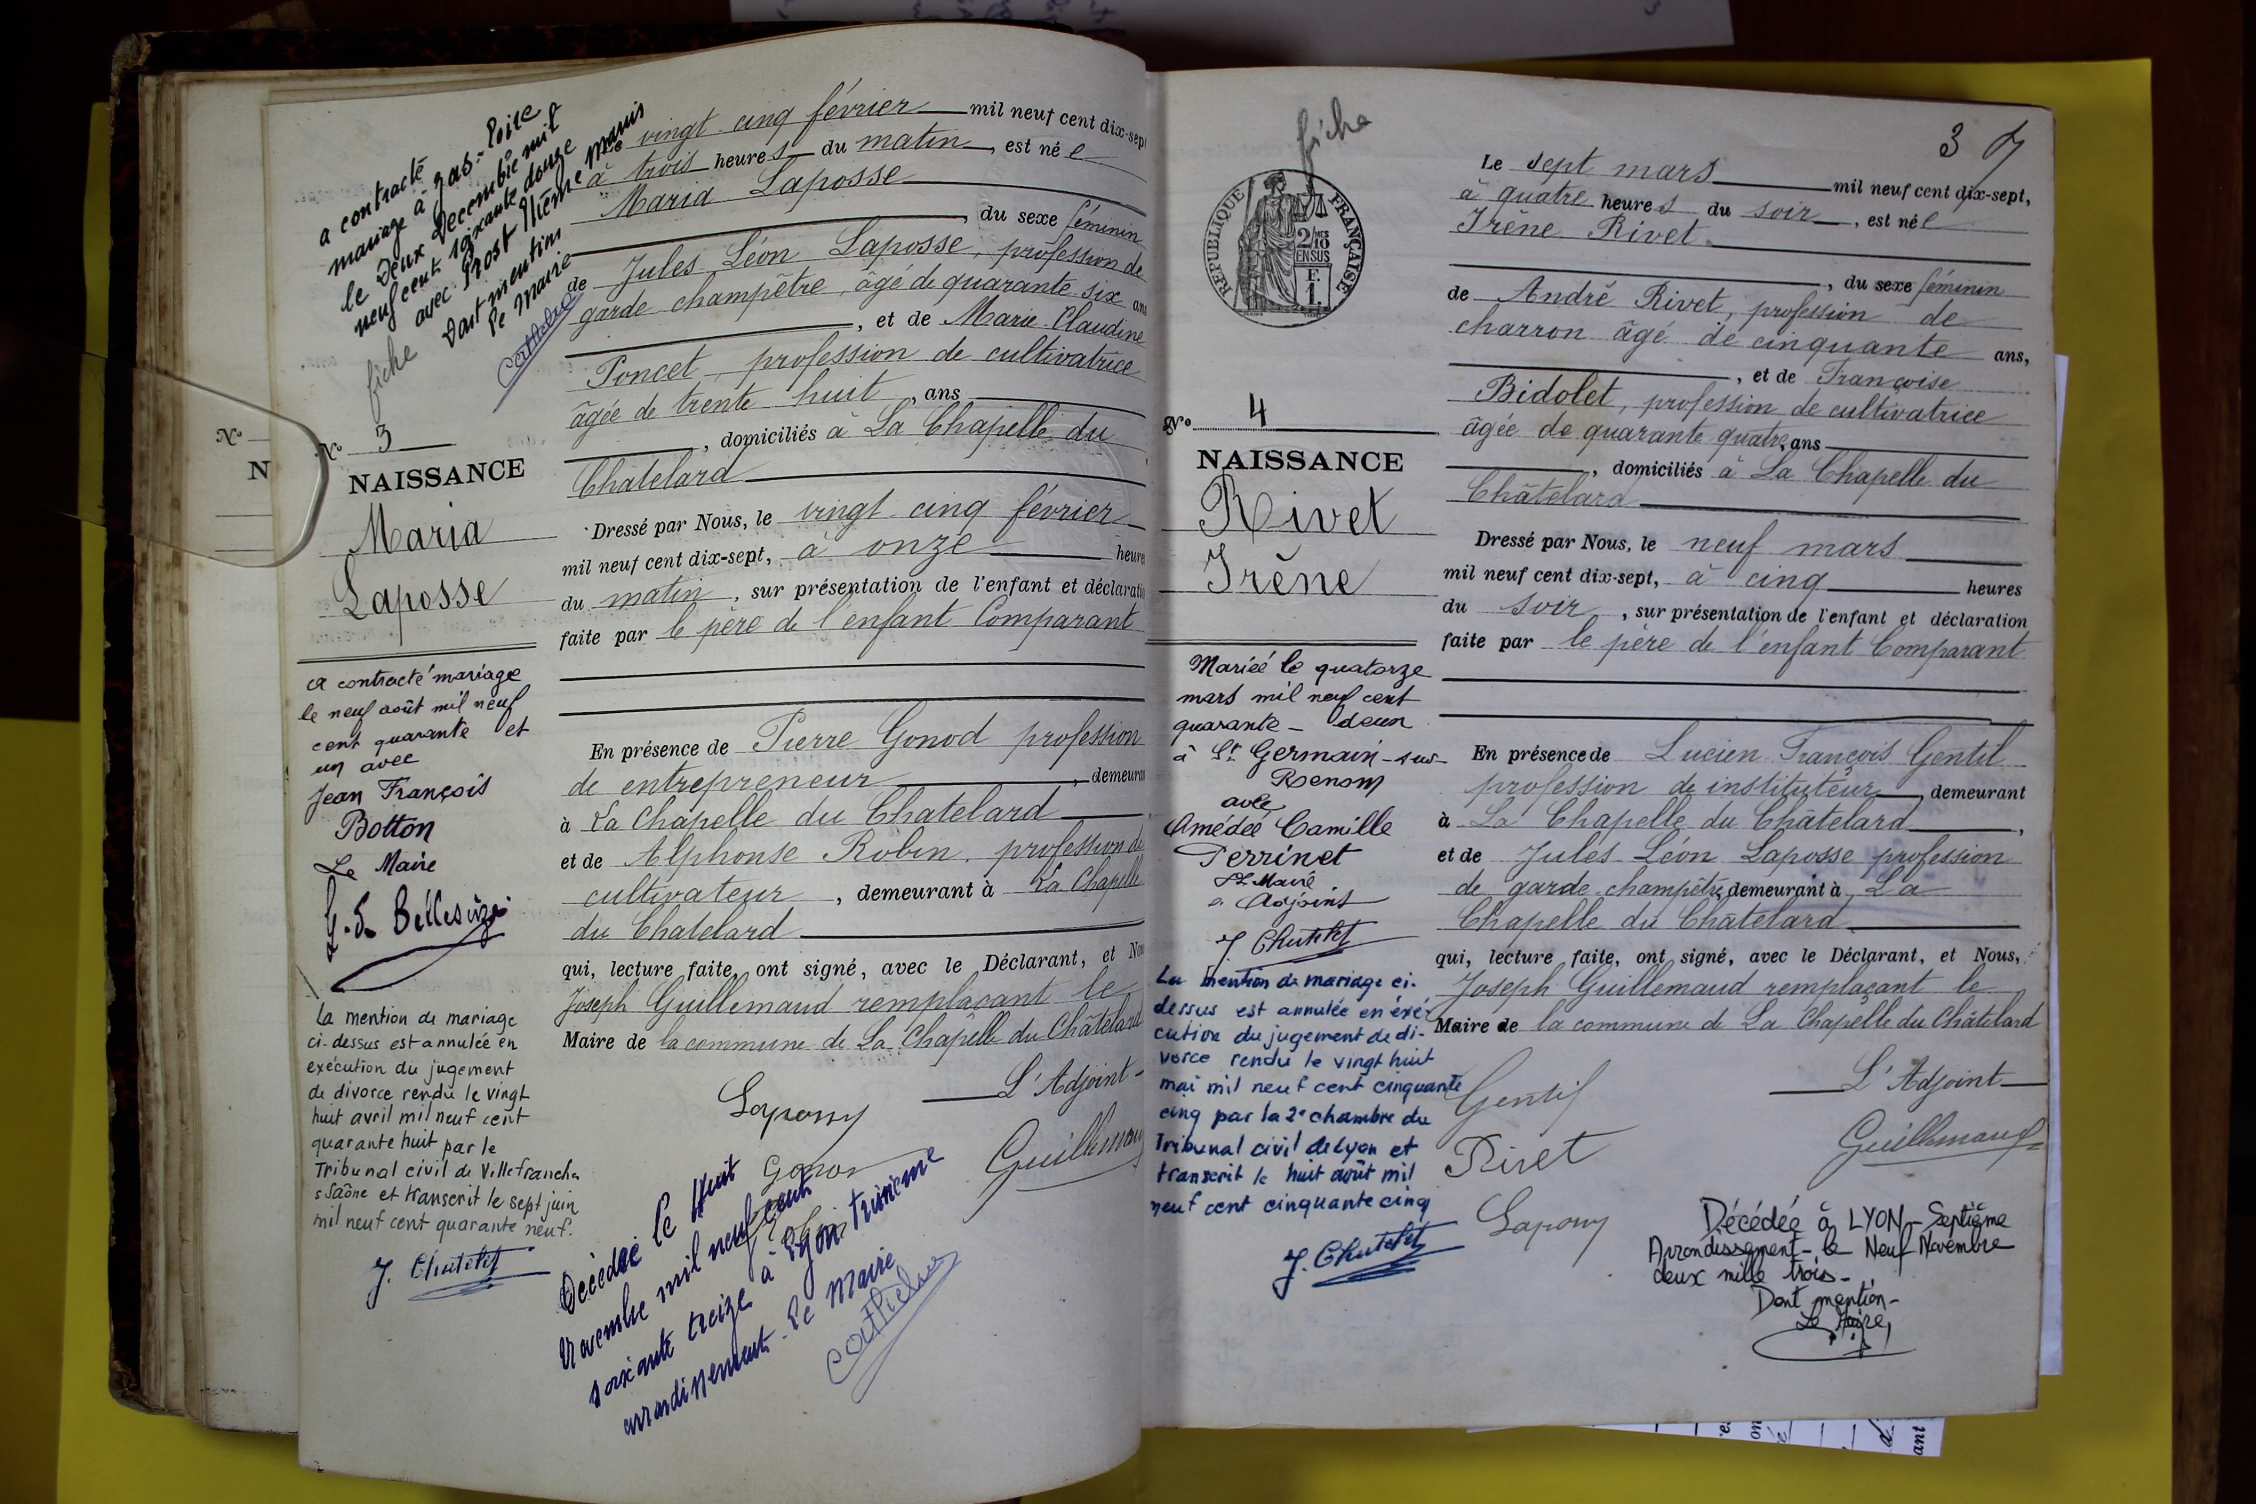 a contracté
mariage à
le deux décembre mil
neuf cent soixante douze
avec Prost Etienne Marius
dont mention
le Maire
fiche
N° 3
NAISSANCE
Maria
Laposse
a contracté mariage
le neuf août mil neuf
cent quarante et
un avec
Jean François
Botton
Le Maire
La mention de mariage
ci-dessus est annulée en
exécution du jugement
de divorce rendu le vingt
huit avril mil neuf cent
quarante huit par le
Tribunal civil de Villefranche
s Saône et transcrit le sept juin
mil neuf cent quarante neuf.
J. Chatelet
vingt cinq février mil neuf cent dix-sept
à trois heures du matin, est née
Maria Laposse
, du sexe féminin
de Jules Léon Laposse, profession de
garde champêtre, âgé de quarante six ans
, et de Marie Claudine
Poncet, profession de cultivatrice
âgée de trente huit, ans
, domiciliés à La Chapelle du
Chatelard
Dressé par Nous, le vingt cinq février
mil neuf cent dix-sept, à onze heures
du matin, sur présentation de l'enfant et déclaration
faite par le père de l'enfant Comparant
En présence de Pierre Gonod profession
de entrepreneur, demeurant
à La Chapelle du Chatelard
et de Alphonse Robin, profession de
cultivateur, demeurant à La Chapelle
du Chatelard
qui, lecture faite, ont signé, avec le Déclarant, et Nous
Joseph Guillemaud remplaçant le
Maire de la commune de La Chapelle du Châtelard
L'Adjoint
Guillemaud
Décédée le huit
novembre mil neuf cent
soixante treize à Lyon troisième
arrondissement. Le Maire
3
fiche
RÉPUBLIQUE FRANÇAISE
2/10
EN SUS
F.
1.
N° 4
NAISSANCE
Rivet
Irène
Mariée le quatorze
mars mil neuf cent
quarante-deux
à St Germain-sur-
Renom
avec
Amédée Camille
Perrinet
Le Maire
Adjoint
J. Chatelet
La mention de mariage ci-
dessus est annulée en éxé-
cution du jugement de di-
vorce rendu le vingt huit
mai mil neuf cent cinquante
cinq par la 2e chambre du
Tribunal civil de Lyon et
transcrit le huit août mil
neuf cent cinquante cinq
J. Chatelet
Le sept mars mil neuf cent dix-sept,
à quatre heures du soir, est née
Irène Rivet
, du sexe féminin
de André Rivet, profession de
charron âgé de cinquante ans,
, et de Françoise
Bidolet, profession de cultivatrice
âgée de quarante quatre, ans
, domiciliés à La Chapelle du
Châtelard
Dressé par Nous, le neuf mars
mil neuf cent dix-sept, à cinq heures
du soir, sur présentation de l'enfant et déclaration
faite par le père de l'enfant Comparant
En présence de Lucien François Gentil
profession de instituteur, demeurant
à La Chapelle du Châtelard,
et de Jules Léon Laposse profession
de garde-champêtre, demeurant à La
Chapelle du Châtelard
qui, lecture faite, ont signé, avec le Déclarant, et Nous,
Joseph Guillemaud remplaçant le
Maire de la commune de La Chapelle du Châtelard
L'Adjoint
Gentil
Guillemaud
Rivet
Décédée à LYON - Septième
Arrondissement - le Neuf Novembre
deux mille trois -
Dont mention -
Le Maire,